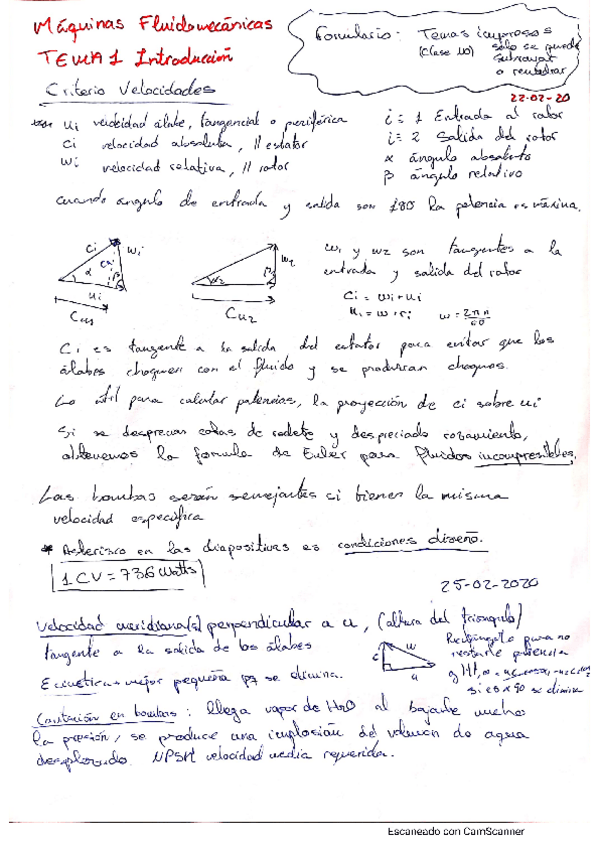 Máquinas Fluidomecánicas
TEMA 1 Introducción
Formulario: Temas impresos
(Clase NO) sólo se puede
subrayar
o recuadrar
Criterio Velocidades
22-02-20
ui velocidad álabe, tangencial o periférica
i ≡ 1 Entrada al rotor
ci velocidad absoluta, // estator
i ≡ 2 Salida del rotor
wi velocidad relativa, // rotor
α ángulo absoluto
β ángulo relativo
Cuando angulo de entrada y salida son 180 la potencia es máxima.
w1 y w2 son tangentes a la
entrada y salida del rotor
Ci = wi + ui
ui = w · ri w = 2πn/60
Ci wi α β ui
Cu1
α2 β w2
Cu2
C1 es tangente a la salida del estator para evitar que los
álabes choquen con el fluido y se produzcan choques.
Lo útil para calcular potencias, la proyección de ci sobre ui
Si se desprecian colas de rodete y despreciado rozamiento,
obtenemos la formula de Euler para fluidos incompresibles.
Las bombas serán semejantes si tienen la misma
velocidad específica
* Asterisco en las diapositivas es condiciones diseño.
1 CV = 736 Watts
25-02-2020
Velocidad meridiana(s) perpendicular a u, (altura del triangulo)
tangente a la salida de los álabes
Rectángulo para no
restarle potencia
c w u
si es 90 se elimina
E cinética mejor pequeña pq se elimina.
Cavitación en bombas: llega vapor de H2O al bajarle mucho
la presión, se produce una implosión del volumen de agua
desplazado. NPSH velocidad media requerida.
Escaneado con CamScanner